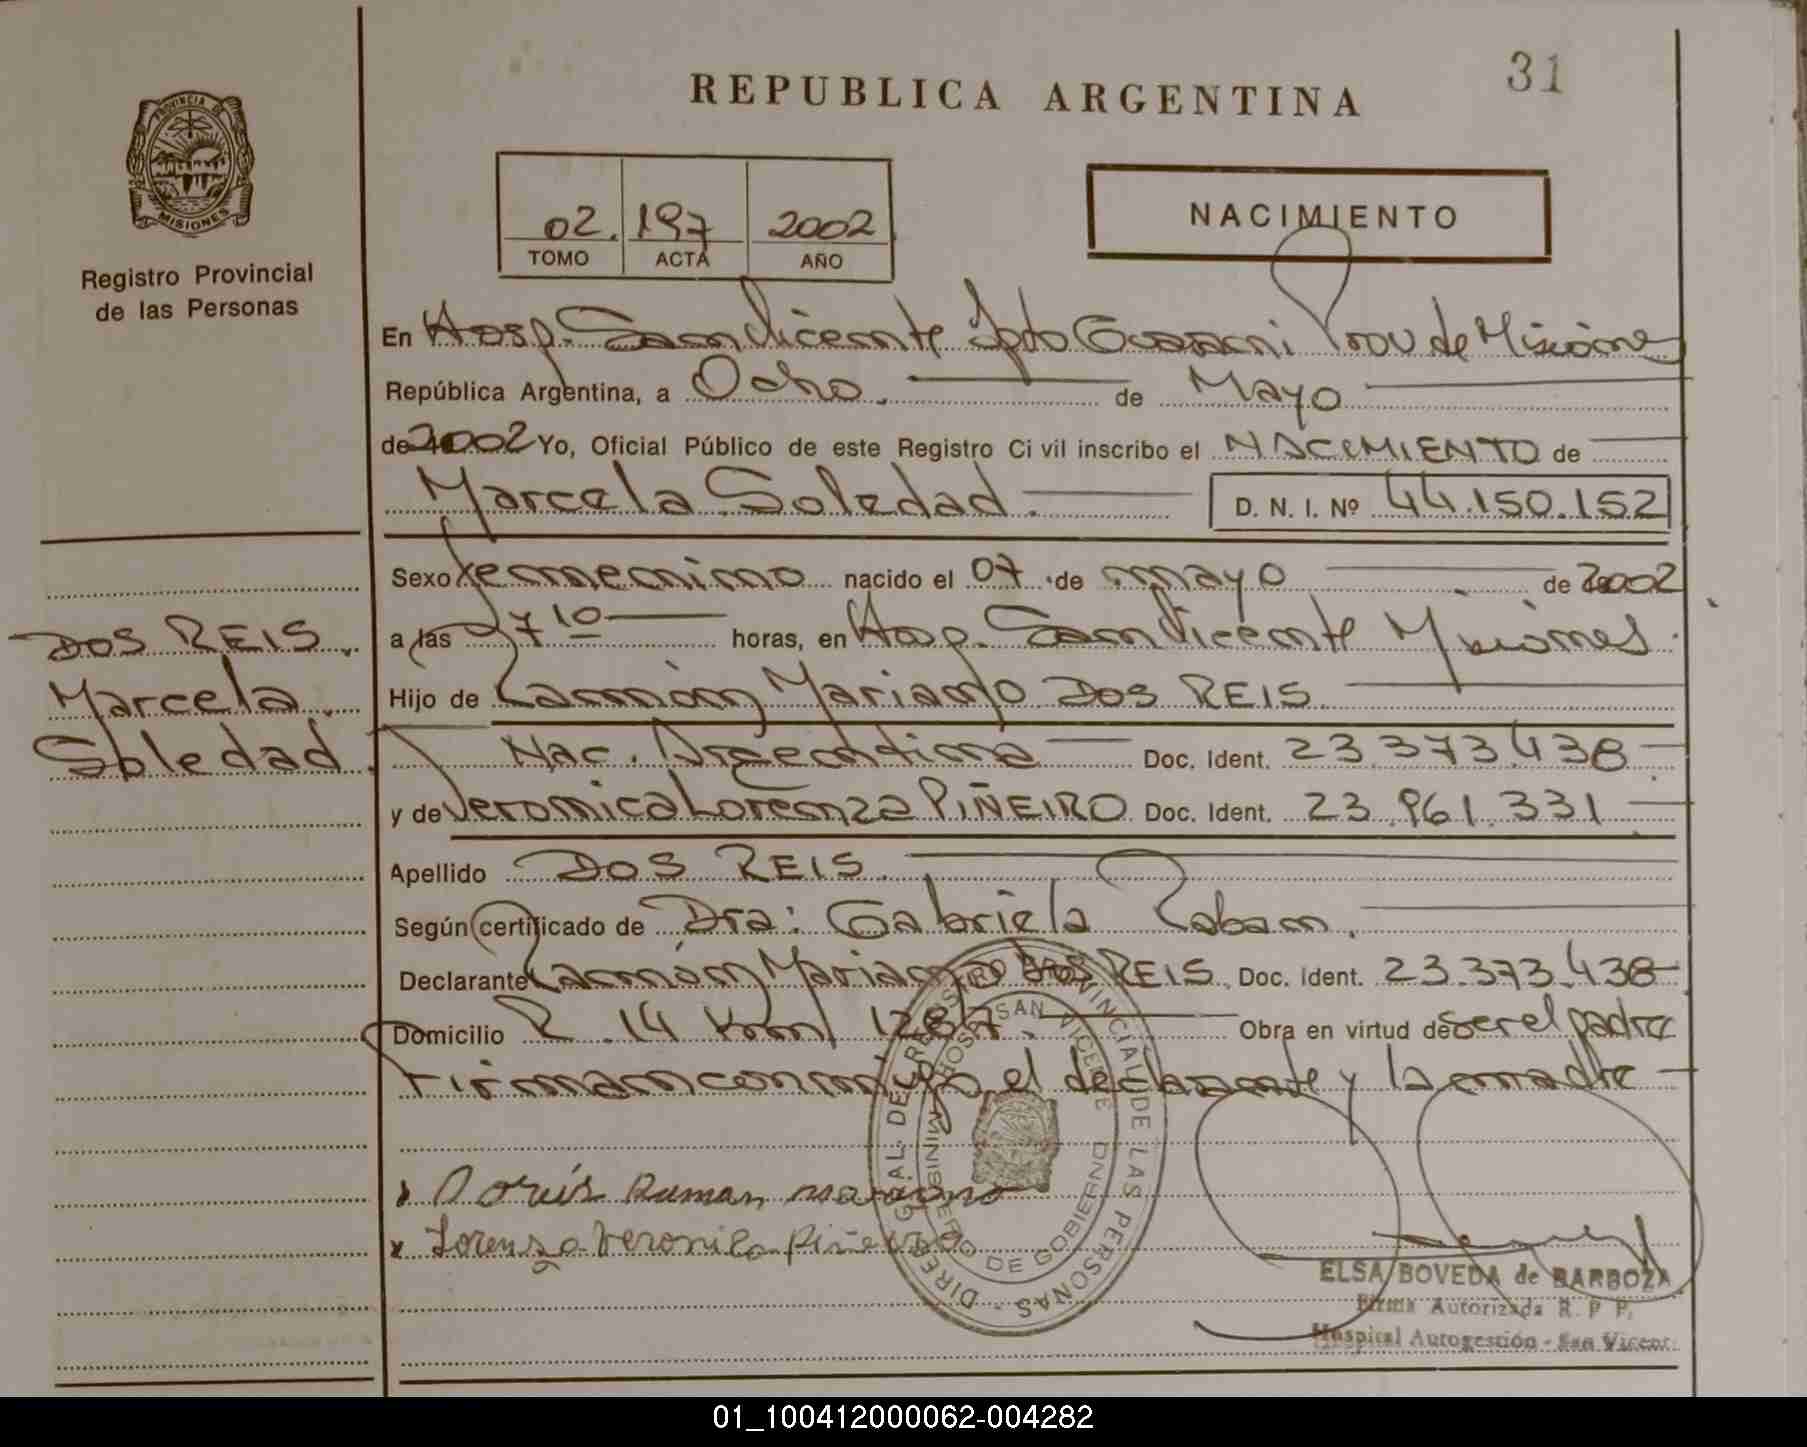 31
REPUBLICA ARGENTINA
PROVINCIA DE
MISIONES
Registro Provincial
de las Personas
02. 197 2002
TOMO ACTA AÑO
NACIMIENTO
En Hosp. San Vicente Dpto Guarani Prov de Misiones
República Argentina, a Ocho. de Mayo
de 2002 Yo, Oficial Público de este Registro Civil inscribo el NACIMIENTO de
Marcela Soledad. D. N. I. Nº 44.150.152
Sexo femenino nacido el 07 de mayo de 2002
a las 7 10 horas, en Hosp. San Vicente Misiones.
Hijo de Ramón Mariano DOS REIS
Nac. Argentina Doc. Ident. 23.373.438
y de Veronica Lorenza PIÑEIRO Doc. Ident. 23.961.331
Apellido DOS REIS.
Según certificado de Dra: Gabriela Raban.
Declarante Ramón Mariano DOS REIS. Doc. Ident. 23.373.438
Domicilio R. 14 Km 1287. Obra en virtud de ser el padre
Firman conmigo, el declarante y la madre
DOS REIS.
Marcela
Soledad.
x Ramon mariano
x Lorenza Veronica Piñeiro
DIREC. GRAL. DEL REGISTRO PROVINCIAL DE LAS PERSONAS
HOSP. SAN VICENTE
MINISTERIO DE GOBIERNO
ELSA BOVEDA de BARBOZA
Firma Autorizada R. P. P.
Hospital Autogestión - San Vicent
01_100412000062-004282